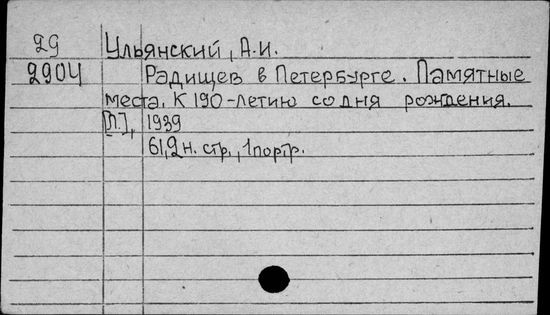 29 Ульянский, А.И.
2904 Радищев в Петербурге. Памятные
места. К 190-летию со дня рождения.
[Л.], 1939
61,2 н. стр., 1 портр.